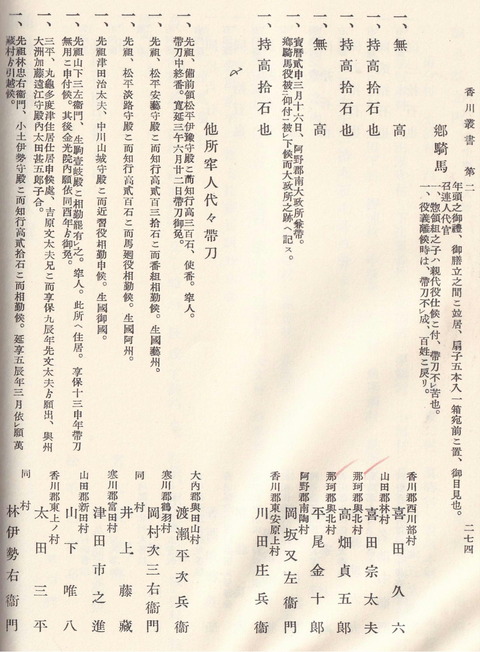 香川叢書　第二
二七四
年頭之御禮、御膳立之間ニ並居、扇子五本入一箱宛前ニ置、御目見也。
召連人代官
一、惣領組之子ハ親代役仕候ニ付、帶刀不レ苦也。
一、役義離候時は、帶刀不レ成、百姓ニ戻リ。
鄕騎馬
一、無高　香川郡西川部村　喜田久六
一、持高拾石也　山田郡林村　喜田宗太夫
一、持高拾石也　那珂郡與北村　高畑貞五郎
一、無高　那珂郡與北村　平尾金十郎
一、寶曆貳申三月十六日、阿野郡南大政所兼帶。
鄕騎馬役被二仰付一被レ下候而大政所之跡ヘ記ス。　阿野郡南陶村　岡坂又左衞門
一、持高拾石也　香川郡東安原上村　川田庄兵衞
他所牢人代々帶刀
一、先祖、備前領松平伊豫守殿ニ而知行高三百石、使番。牢人。
帶刀中終番。寬延三午六月廿二日帶刀御免。　大內郡與田山村　渡瀨平次兵衞
一、先祖、松平安藝守殿ニ而知行高貳百三拾石ニ而番組相勤候。生國藝州。　寒川郡鶴羽村　岡村次三右衞門
一、先祖、松平淡路守殿ニ而知行高貳百石ニ而馬廻役相勤候。生國阿州。　同村　井上藤藏
一、先祖津田治太夫、中川山城守殿ニ而近習役相勤申候。生國御國。　寒川郡富田村　津田市之進
一、先祖山下三左衞門、生駒壹岐殿ニ相勤罷有レ之。牢人。此所ヘ住居。享保十三申年帶刀
無用ニ申付候。其後金光院內願依同酉年ゟ御免。　山田郡新田村　山下唯八
一、三平、丸龜多度津住居仕居申候處、吉原文太夫兄ニ而享保九辰年先文太夫ゟ願出、與州
大洲加藤遠江守殿內太田甚五郎子合。　香川郡東上ノ村　太田三平
一、先祖林忠右衞門、小土伊勢守殿ニ而知行貳拾石ニ而相勤候。延享五辰年三月依レ願萬
藏村ゟ引越候。　同村　林伊勢右衞門